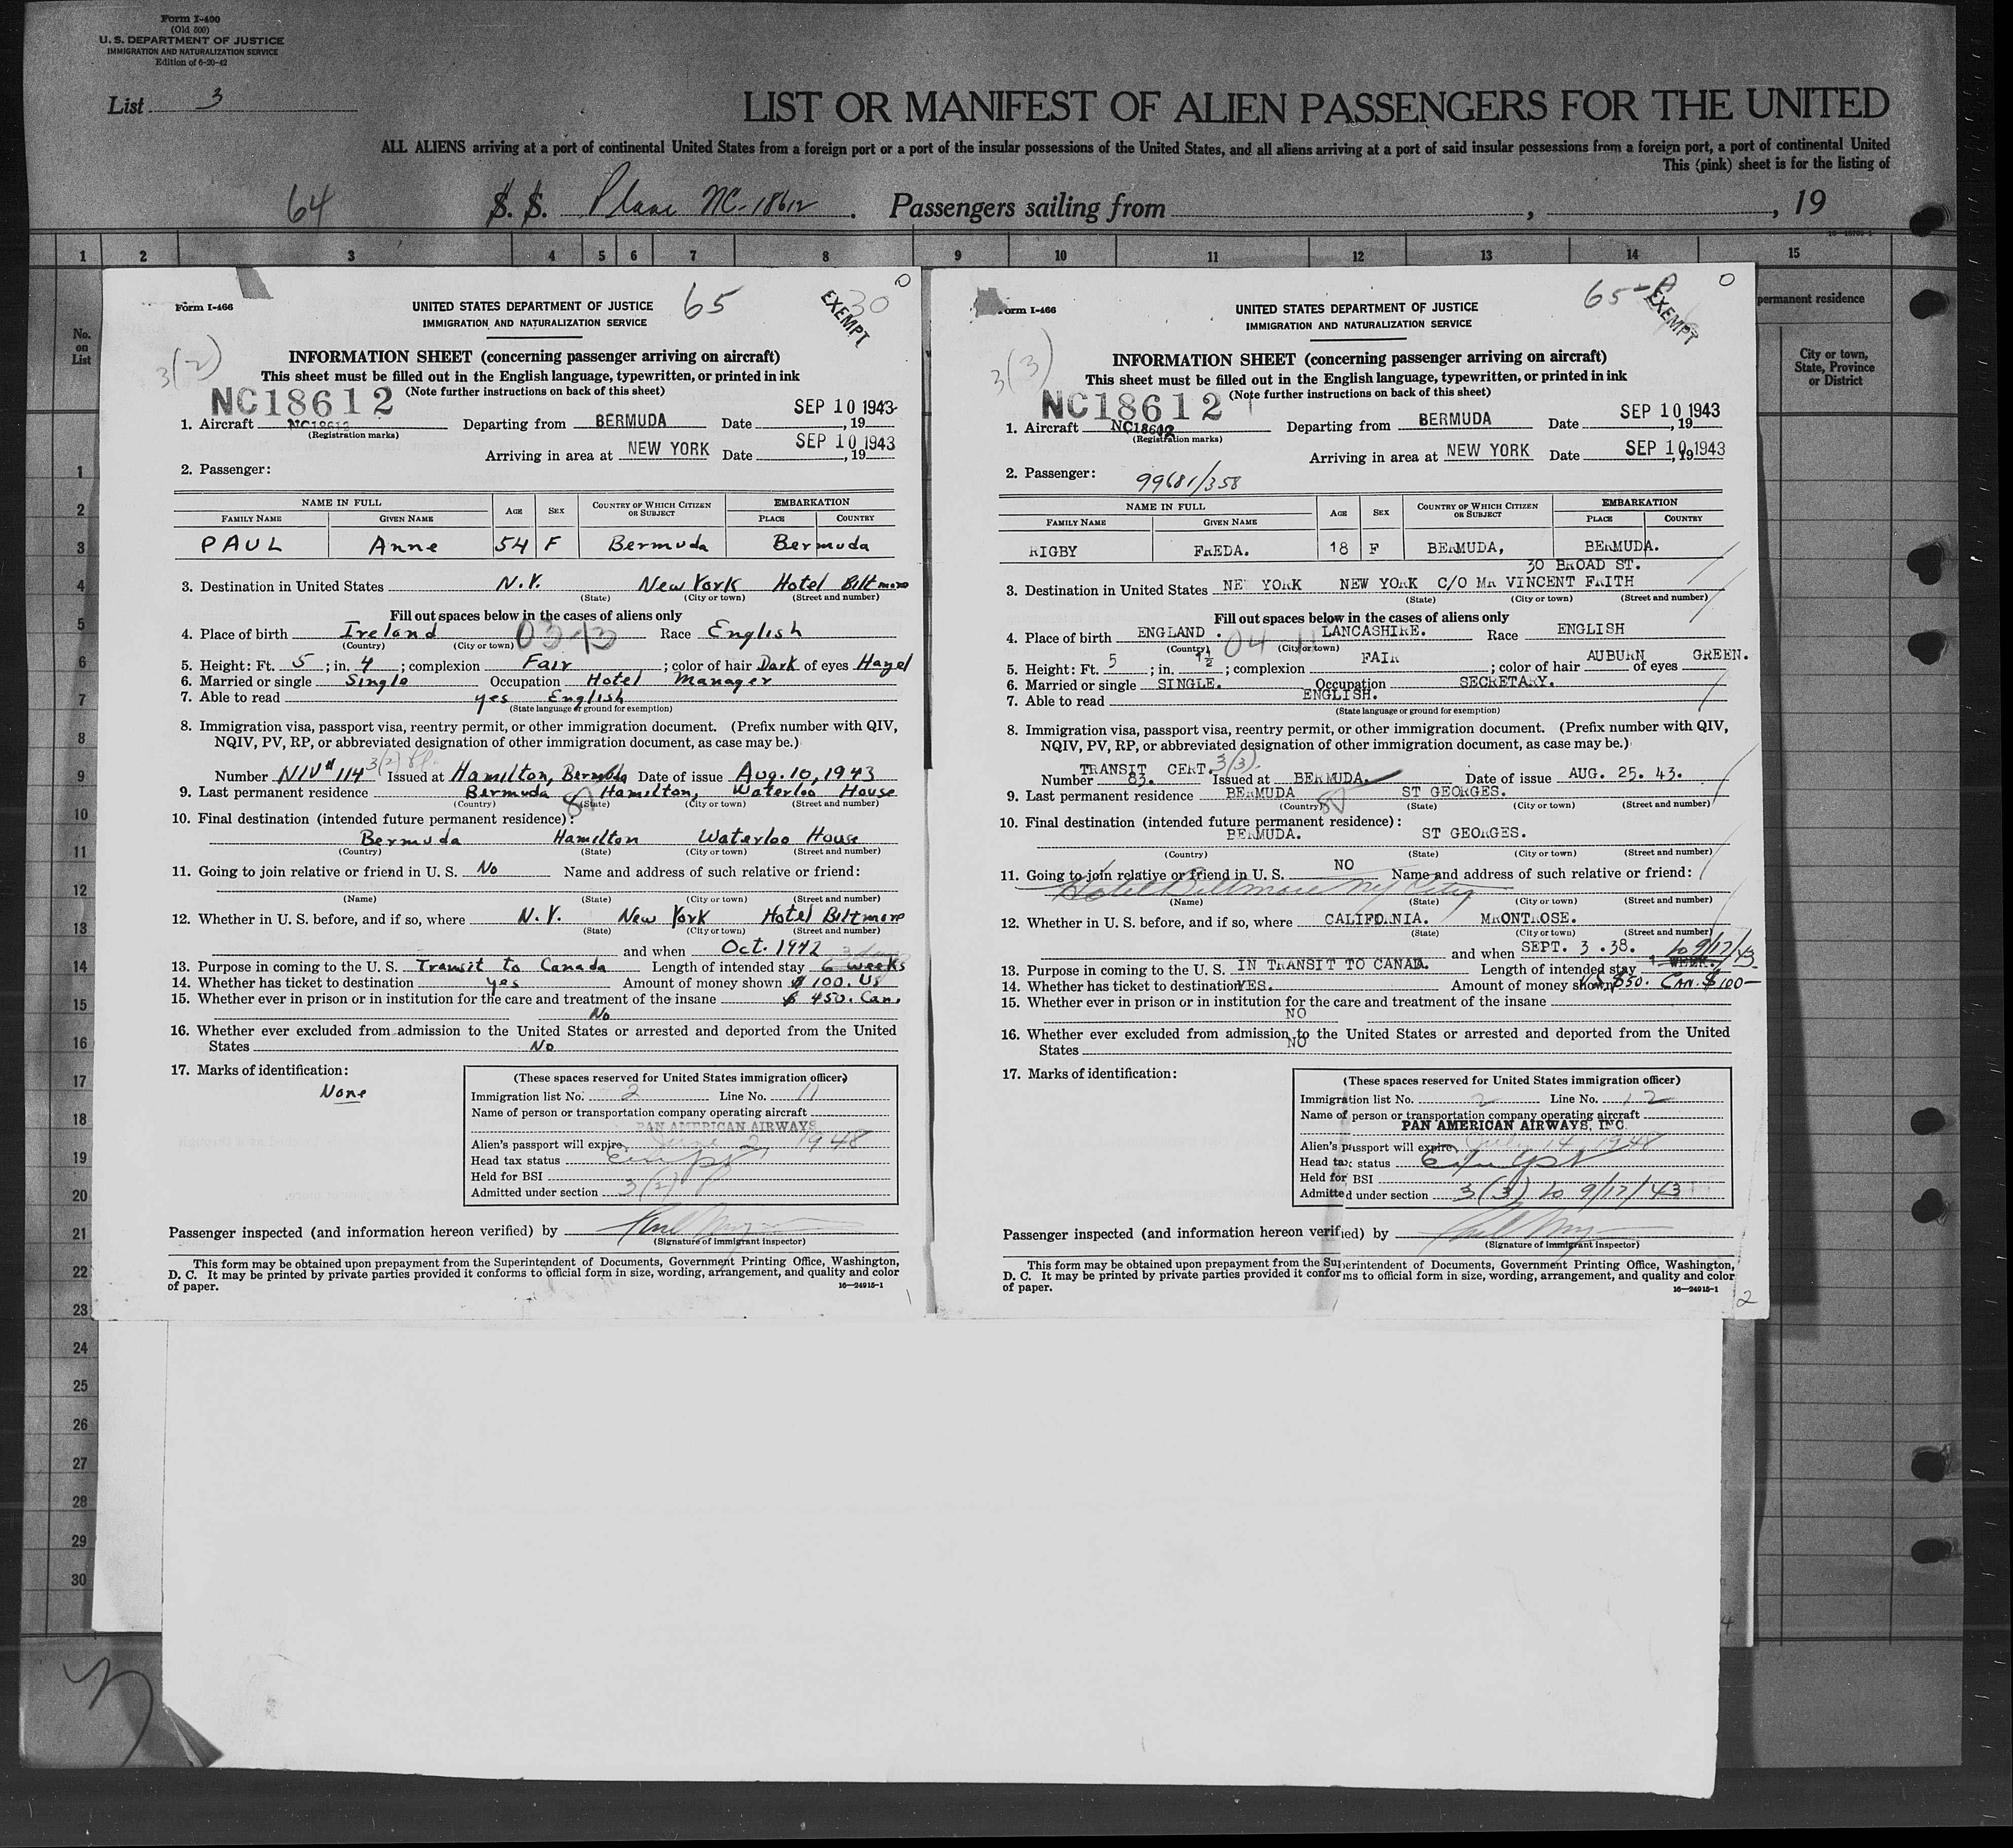 Form I-400
(Old 500)
U. S. DEPARTMENT OF JUSTICE
IMMIGRATION AND NATURALIZATION SERVICE
Edition of 6-20-42
List 3
LIST OR MANIFEST OF ALIEN PASSENGERS FOR THE UNITED
ALL ALIENS arriving at a port of continental United States from a foreign port or a port of the insular possessions of the United States, and all aliens arriving at a port of said insular possessions from a foreign port, a port of continental United
This (pink) sheet is for the listing of
64 S. S. Plane NC-18612 . Passengers sailing from , , 19
1 2 3 4 5 6 7 8 9 10 11 12 13 14 15
No.
on
List
permanent residence
City or town,
State, Province
or District
1
2
3
4
5
6
7
8
9
10
11
12
13
14
15
16
17
18
19
20
21
22
23
24
25
26
27
28
29
30
Form I-466
UNITED STATES DEPARTMENT OF JUSTICE 65 30 0
IMMIGRATION AND NATURALIZATION SERVICE EXEMPT
3(2)
INFORMATION SHEET (concerning passenger arriving on aircraft)
This sheet must be filled out in the English language, typewritten, or printed in ink
(Note further instructions on back of this sheet)
NC18612
SEP 10 1943
1. Aircraft NC18612 Departing from BERMUDA Date , 19
(Registration marks)
Arriving in area at NEW YORK Date SEP 10 1943 , 19
2. Passenger:
NAME IN FULL AGE SEX COUNTRY OF WHICH CITIZEN OR SUBJECT EMBARKATION
FAMILY NAME GIVEN NAME PLACE COUNTRY
PAUL Anne 54 F Bermuda Bermuda
3. Destination in United States N.Y. New York Hotel Biltmore
(State) (City or town) (Street and number)
Fill out spaces below in the cases of aliens only
4. Place of birth Ireland 03-13 Race English
(Country) (City or town)
5. Height: Ft. 5 ; in. 4 ; complexion Fair ; color of hair Dark of eyes Hazel
6. Married or single Single Occupation Hotel Manager
7. Able to read yes English
(State language or ground for exemption)
8. Immigration visa, passport visa, reentry permit, or other immigration document. (Prefix number with QIV,
NQIV, PV, RP, or abbreviated designation of other immigration document, as case may be.)
Number NIV# 114 3(2) Issued at Hamilton, Bermuda Date of issue Aug. 10, 1943
9. Last permanent residence Bermuda Hamilton, Waterloo House
(Country) (State) (City or town) (Street and number)
10. Final destination (intended future permanent residence):
Bermuda Hamilton Waterloo House
(Country) (State) (City or town) (Street and number)
11. Going to join relative or friend in U. S. No Name and address of such relative or friend:
(Name) (State) (City or town) (Street and number)
12. Whether in U. S. before, and if so, where N.Y. New York Hotel Biltmore
(State) (City or town) (Street and number)
and when Oct. 1942
13. Purpose in coming to the U. S. Transit to Canada Length of intended stay 6 weeks
14. Whether has ticket to destination yes Amount of money shown $ 100. US
15. Whether ever in prison or in institution for the care and treatment of the insane $ 450. Can.
No
16. Whether ever excluded from admission to the United States or arrested and deported from the United
States No
17. Marks of identification:
None
(These spaces reserved for United States immigration officer)
Immigration list No. 2 Line No. 11
Name of person or transportation company operating aircraft
PAN AMERICAN AIRWAYS
Alien's passport will expire June 2, 1948
Head tax status Exempt
Held for BSI
Admitted under section 3(2)
Passenger inspected (and information hereon verified) by
(Signature of immigrant inspector)
This form may be obtained upon prepayment from the Superintendent of Documents, Government Printing Office, Washington,
D. C. It may be printed by private parties provided it conforms to official form in size, wording, arrangement, and quality and color
of paper. 16—24915-1
Form I-466
UNITED STATES DEPARTMENT OF JUSTICE 65-A 0
IMMIGRATION AND NATURALIZATION SERVICE EXEMPT
3(3)
INFORMATION SHEET (concerning passenger arriving on aircraft)
This sheet must be filled out in the English language, typewritten, or printed in ink
(Note further instructions on back of this sheet)
NC18612
SEP 10 1943
1. Aircraft NC18612 Departing from BERMUDA Date , 19
(Registration marks)
Arriving in area at NEW YORK Date SEP 10 1943 , 19
2. Passenger: 99681/358
NAME IN FULL AGE SEX COUNTRY OF WHICH CITIZEN OR SUBJECT EMBARKATION
FAMILY NAME GIVEN NAME PLACE COUNTRY
RIGBY FREDA. 18 F BERMUDA, BERMUDA.
30 BROAD ST.
3. Destination in United States NE YORK NEW YORK C/O MR VINCENT FRITH
(State) (City or town) (Street and number)
Fill out spaces below in the cases of aliens only
4. Place of birth ENGLAND . 04-11 LANCASHIRE. Race ENGLISH
(Country) (City or town)
5. Height: Ft. 5 ; in. 1½ ; complexion FAIR ; color of hair AUBURN of eyes GREEN.
6. Married or single SINGLE. Occupation SECRETARY.
7. Able to read ENGLISH.
(State language or ground for exemption)
8. Immigration visa, passport visa, reentry permit, or other immigration document. (Prefix number with QIV,
NQIV, PV, RP, or abbreviated designation of other immigration document, as case may be.)
TRANSIT CERT. 3(3).
Number 83. Issued at BERMUDA. Date of issue AUG. 25. 43.
9. Last permanent residence BERMUDA ST GEORGES.
(Country) (State) (City or town) (Street and number)
10. Final destination (intended future permanent residence):
BERMUDA. ST GEORGES.
(Country) (State) (City or town) (Street and number)
11. Going to join relative or friend in U. S. NO Name and address of such relative or friend:
Hotel Biltmore NY City
(Name) (State) (City or town) (Street and number)
12. Whether in U. S. before, and if so, where CALIFORNIA. MRONTROSE.
(State) (City or town) (Street and number)
and when SEPT. 3 .38. to 9/17/43
13. Purpose in coming to the U. S. IN TRANSIT TO CANADA. Length of intended stay 1 WEEK.
14. Whether has ticket to destination YES. Amount of money shown US $50. CAN. $100—
15. Whether ever in prison or in institution for the care and treatment of the insane
NO
16. Whether ever excluded from admission to the United States or arrested and deported from the United
States NO
17. Marks of identification:
(These spaces reserved for United States immigration officer)
Immigration list No. 2 Line No. 12
Name of person or transportation company operating aircraft
PAN AMERICAN AIRWAYS, INC.
Alien's passport will expire July 14, 1948
Head tax status Exempt
Held for BSI
Admitted under section 3(3) to 9/17/43
Passenger inspected (and information hereon verified) by
(Signature of immigrant inspector)
This form may be obtained upon prepayment from the Superintendent of Documents, Government Printing Office, Washington,
D. C. It may be printed by private parties provided it conforms to official form in size, wording, arrangement, and quality and color
of paper. 16—24915-1
2